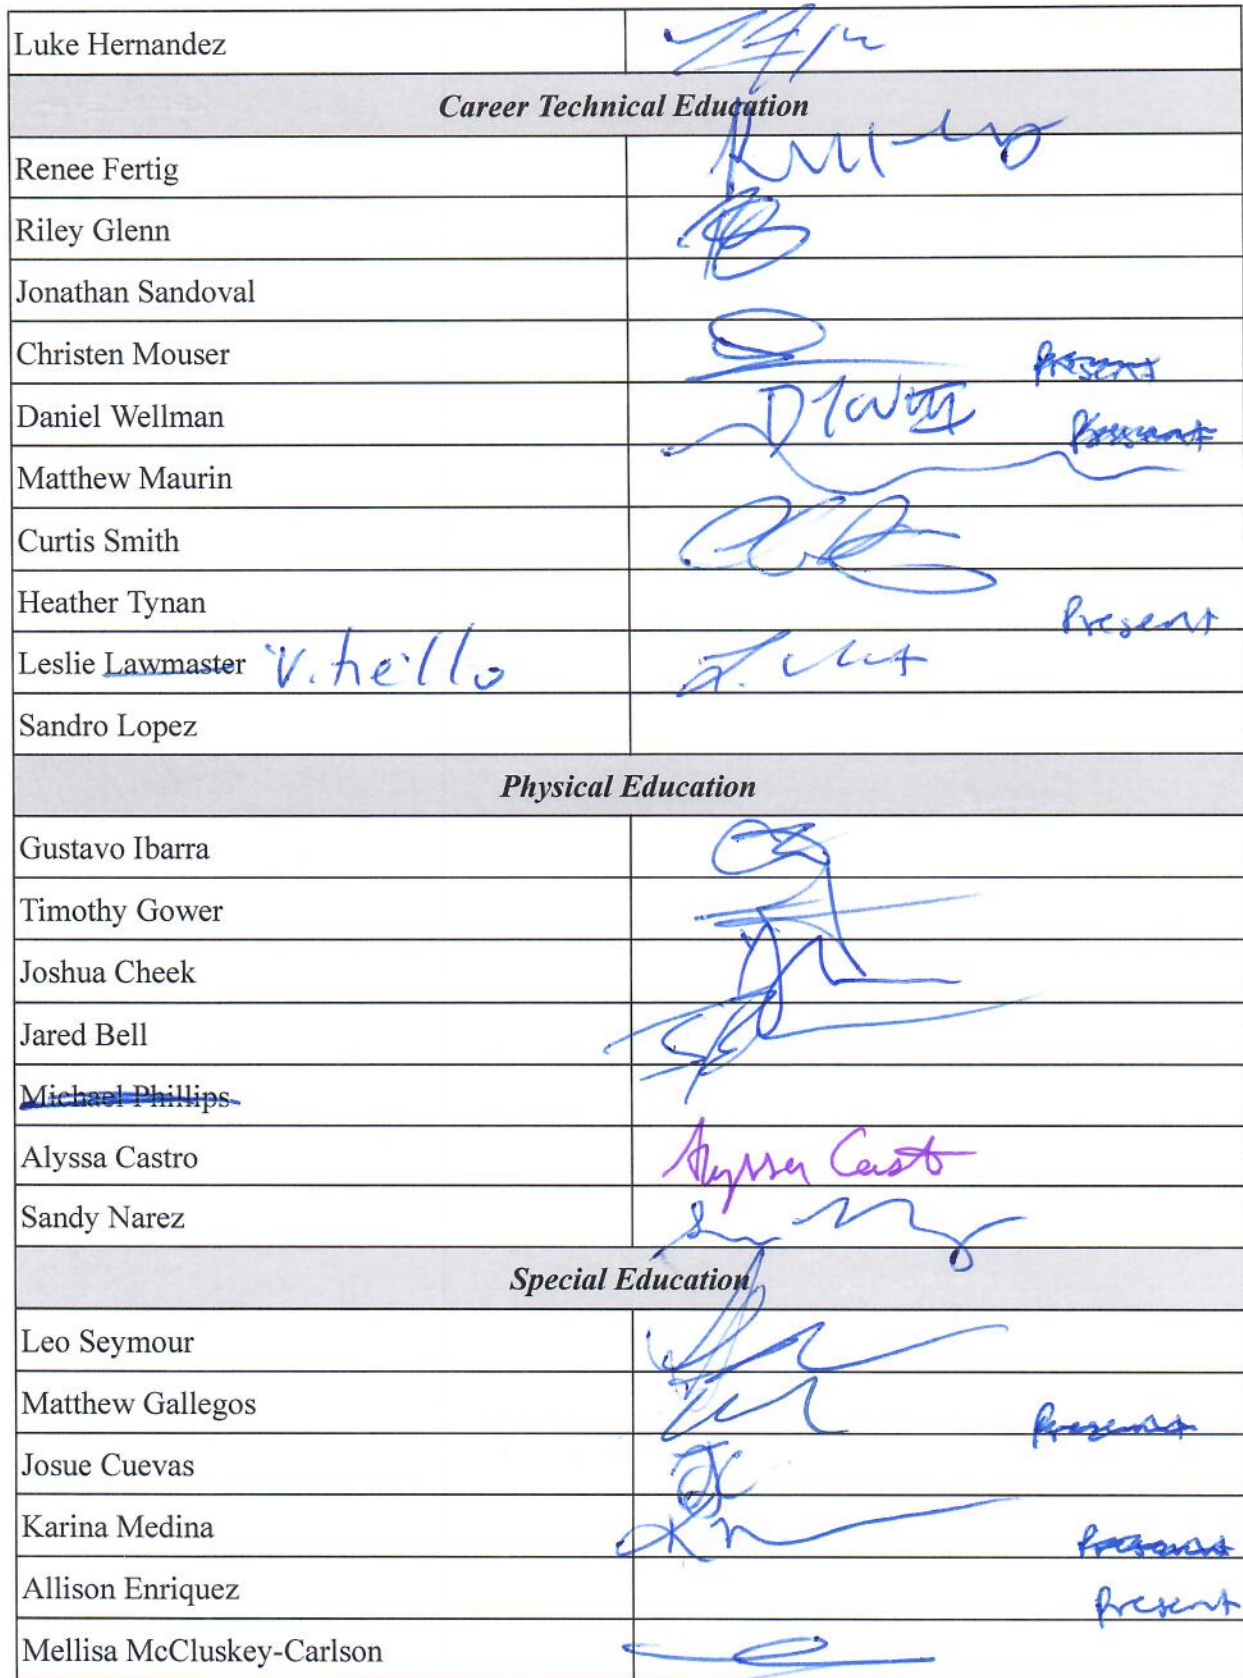 Luke Hernandez
Career Technical Education
Renee Fertig
Riley Glenn
Jonathan Sandoval
Christen Mouser Present
Daniel Wellman Present
Matthew Maurin
Curtis Smith
Heather Tynan Present
Leslie Lawmaster Vitiello
Sandro Lopez
Physical Education
Gustavo Ibarra
Timothy Gower
Joshua Cheek
Jared Bell
Michael Phillips
Alyssa Castro Alyssa Castro
Sandy Narez
Special Education
Leo Seymour
Matthew Gallegos Present
Josue Cuevas
Karina Medina Present
Allison Enriquez Present
Mellisa McCluskey-Carlson